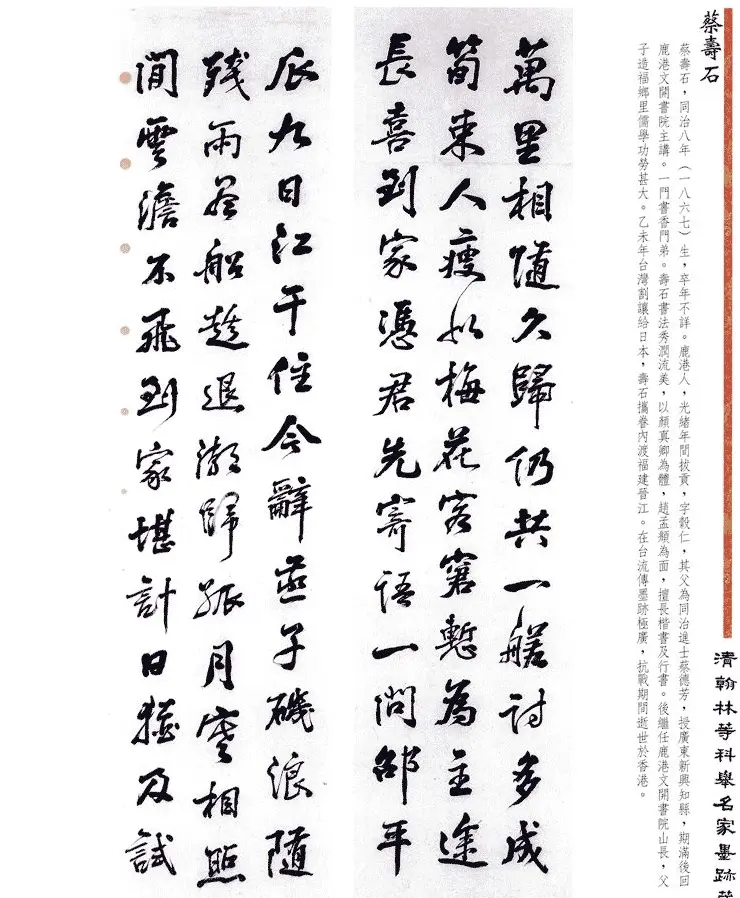 清翰林等科舉名家墨跡
蔡壽石
蔡壽石，同治八年（一八六七）生，卒年不詳。鹿港人，光緒年間拔貢，字穀仁，其父為同治進士蔡德芳，授廣東新興知縣，期滿後回
鹿港文開書院主講。一門書香門弟。壽石書法秀潤流美，以顏真卿為體，趙孟頫為面，擅長楷書及行書。後繼任鹿港文開書院山長，父
子造福鄉里儒學功勞甚大。乙未年台灣割讓給日本，壽石攜眷內渡福建晉江。在台流傳墨跡極廣，抗戰期間逝世於香港。
萬里相隨久歸仍共一艖詩多成
筍束人瘦似梅花客窘慙為主途
長喜到家憑君先寄語一問邵平
瓜九日江干住今辭燕子磯浪隨
殘雨卷船趁退潮歸孤月寒相照
閒雲澹不飛到家堪計日猶及試